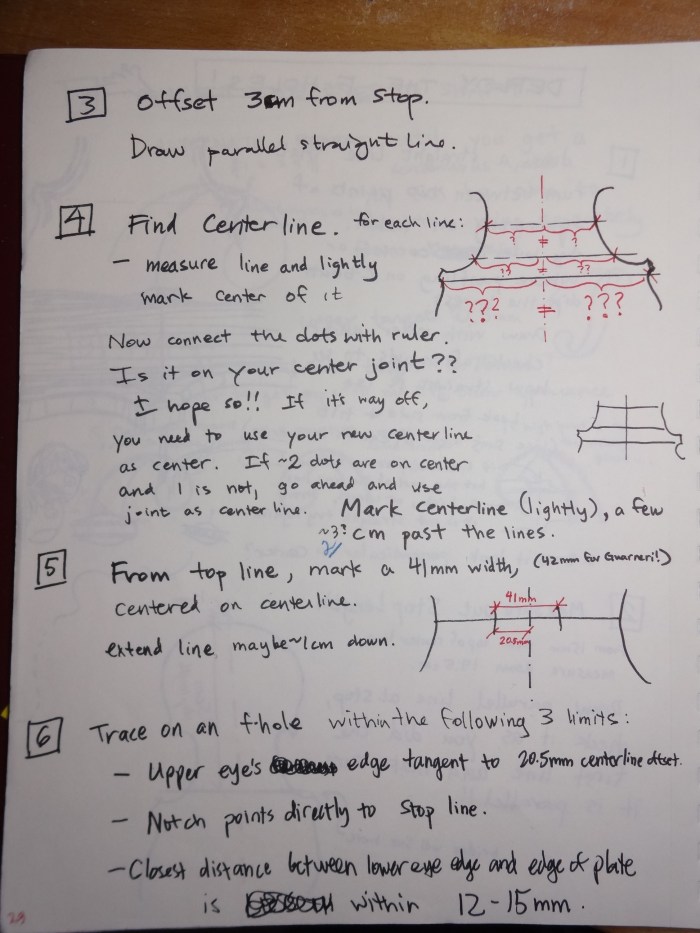 3 Offset 3cm from stop.
Draw parallel straight line.
4 Find Centerline. for each line:
- measure line and lightly
mark center of it
? = ?
?? = ??
??? = ???
Now connect the dots with ruler.
Is it on your center joint??
I hope so!! If it's way off,
you need to use your new centerline
as center. If ~2 dots are on center
and 1 is not, go ahead and use
joint as center line. Mark centerline (lightly), a few
~3? cm past the lines.
5 From top line, mark a 41mm width, (42mm for Guarneri!)
centered on centerline.
extend line maybe ~1cm down.
41mm
20.5mm
6 Trace on an f-hole within the following 3 limits:
- Upper eye's edge tangent to 20.5mm centerline offset.
- Notch points directly to stop line.
- Closest distance between lower eye edge and edge of plate
is within 12-15mm.